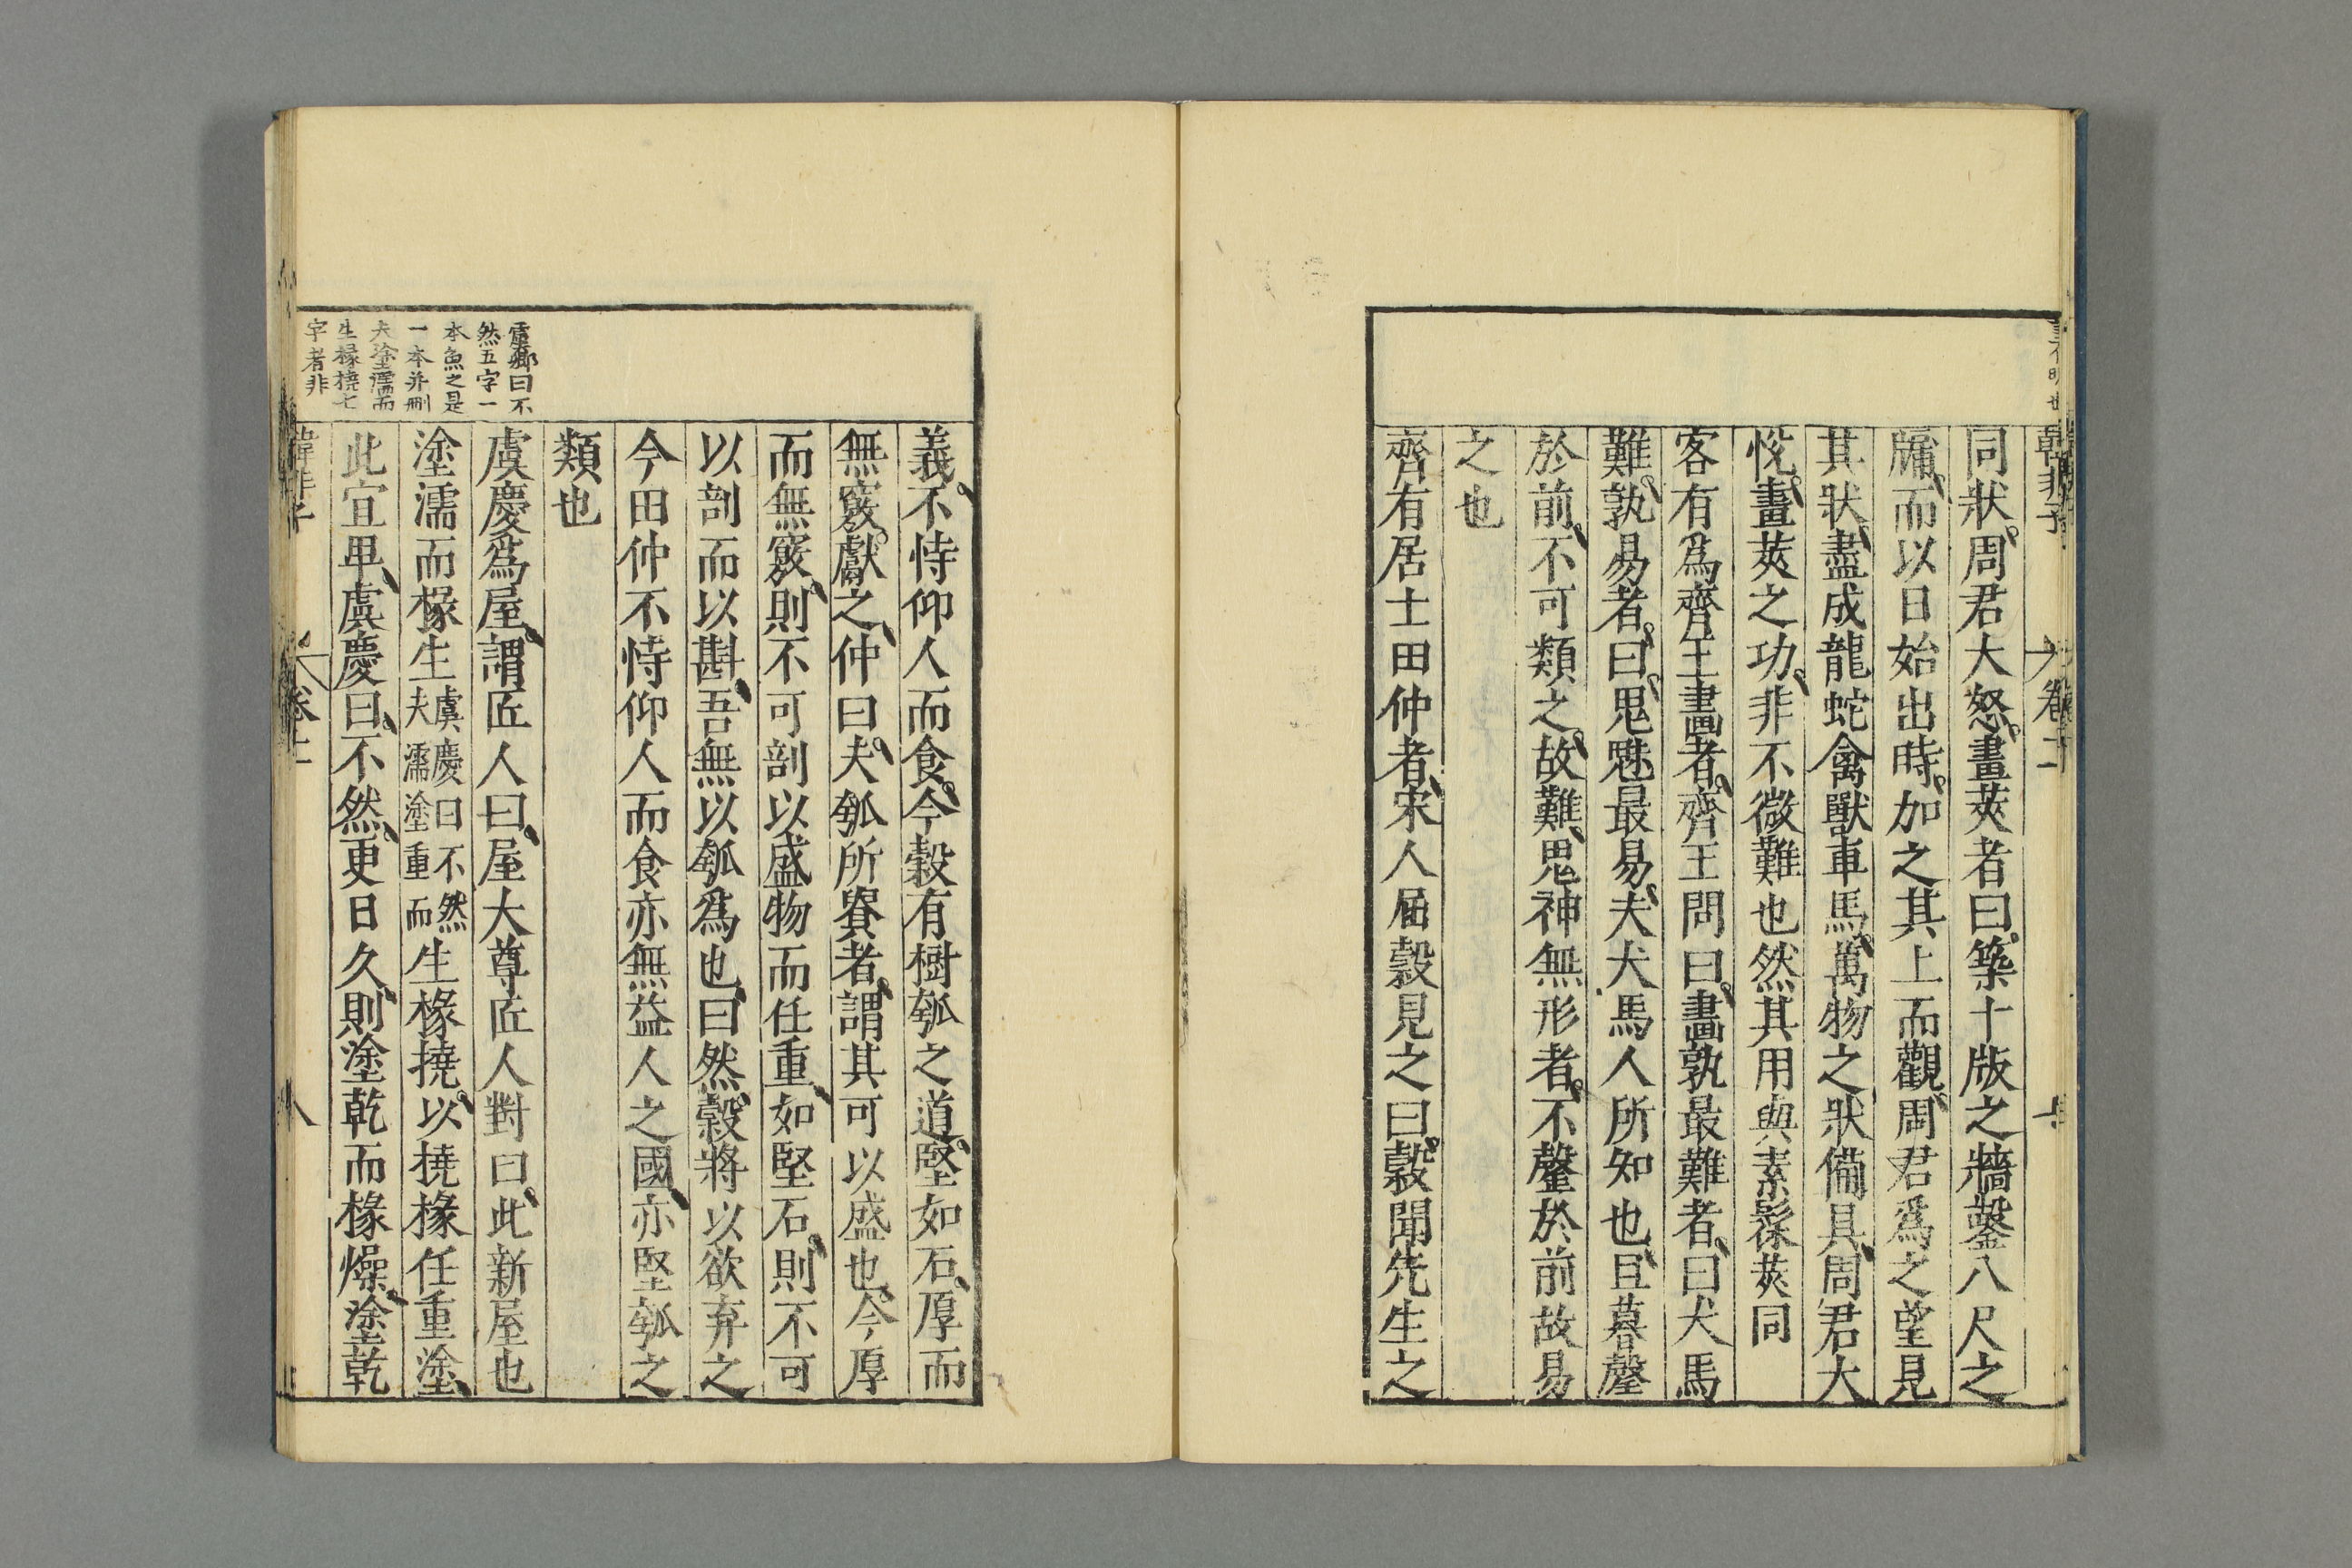 韓非子
卷十一
同狀周君大怒畫莢者曰築十版之牆鑿八尺之
牖而以日始出時加之其上而觀周君爲之望見
其狀盡成龍蛇禽獸車馬萬物之狀備具周君大
悅畫莢之功非不微難也然其用與素髹莢同
客有爲齊王畫者齊王問曰畫孰最難者曰犬馬
難孰易者曰鬼魅最易夫犬馬人所知也且暮罄
於前不可類之故難鬼神無形者不罄於前故易
之也
齊有居士田仲者宋人屈穀見之曰穀聞先生之
義不恃仰人而食今穀有樹瓠之道堅如石厚而
無竅獻之仲曰夫瓠所貴者謂其可以盛也今厚
而無竅則不可剖以盛物而任重如堅石則不可
以剖而以斟吾無以瓠爲也曰然穀將以欲弃之
今田仲不恃仰人而食亦無益人之國亦堅瓠之
類也
虞慶爲屋謂匠人曰屋大尊匠人對曰此新屋也
塗濡而椽生虞慶曰不然夫濡塗重而生椽撓以撓椽任重塗
此宜卑虞慶曰不然更日久則塗乾而椽燥塗乾
曰不
然五字一
本魚之是
一本并刪
夫塗濡而
生椽撓七
字者非
韓非子
八